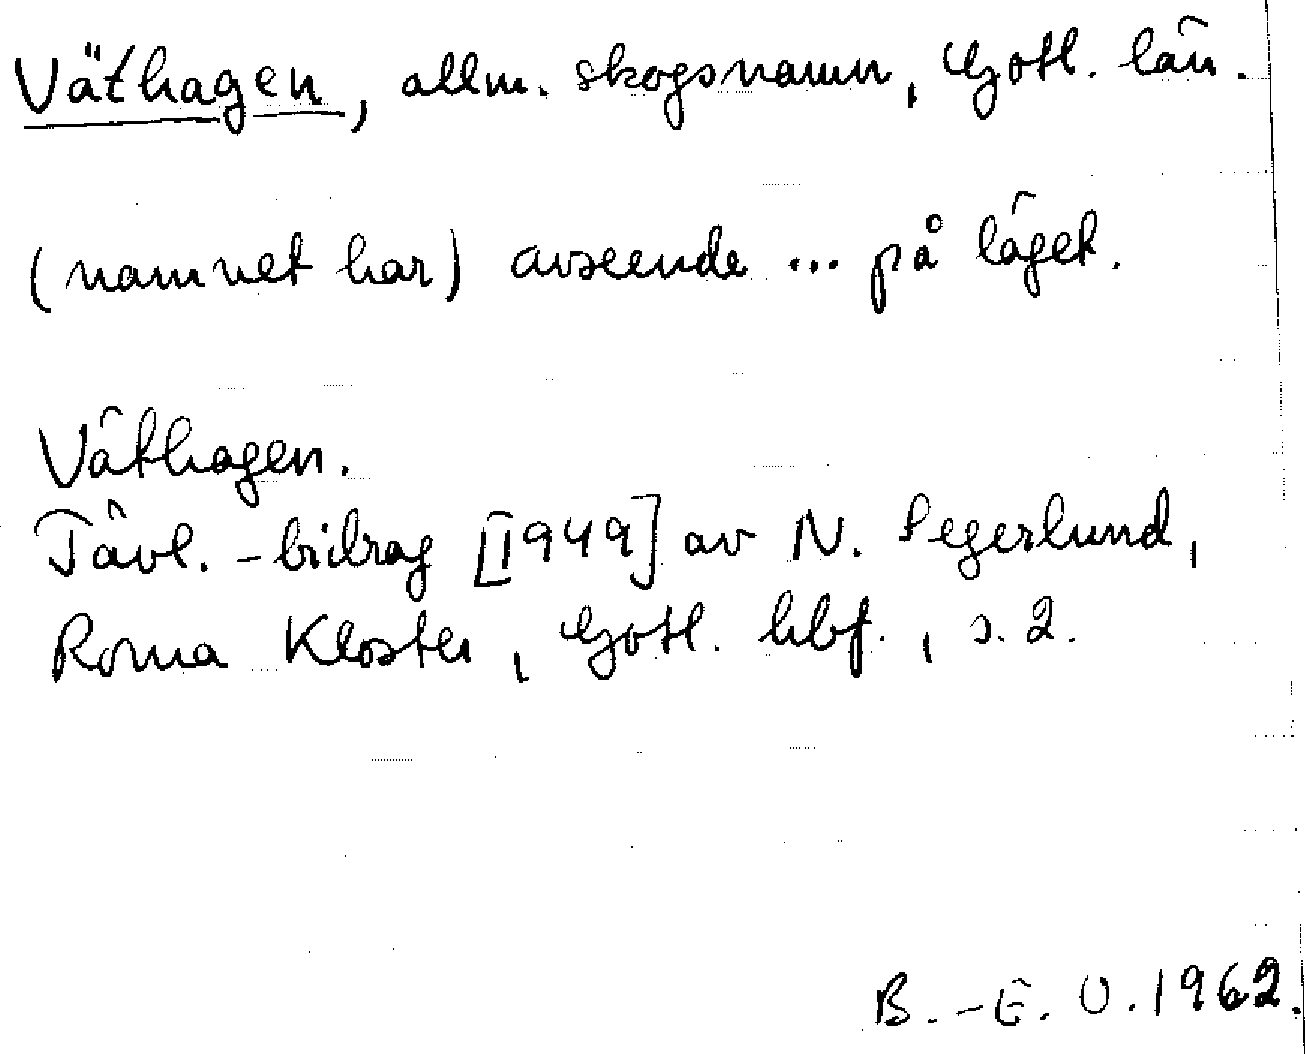 Väthagen, allm. skogsnamn, Gotl. län.
(namnet har) avseende ... på läget.
Väthagen.
Tävl.-bidrag [1949] av N. Segerlund,
Roma Kloster, Gotl. hbf., s. 2.
B.-E. U. 1962.